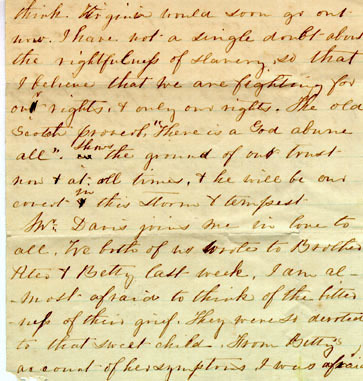 think. Virginia would soon go out
now. I have not a single doubt about
the rightfulness of slavery, so that
I believe that we are fighting for
our rights, & only our rights. The old
Scotch proverb, "There is a God abune
all". Shews the ground of our trust
now & at all times, & he will be our
in this storm & tempest
Mr. Davis joins me in love to
all. We both of us wrote to Brother
Peter & Betty last week. I am al-
most afraid to think of the bitter
ness of their grief. They were so devoted
to that sweet child. From Betty's
account of her symptoms, I was afraid